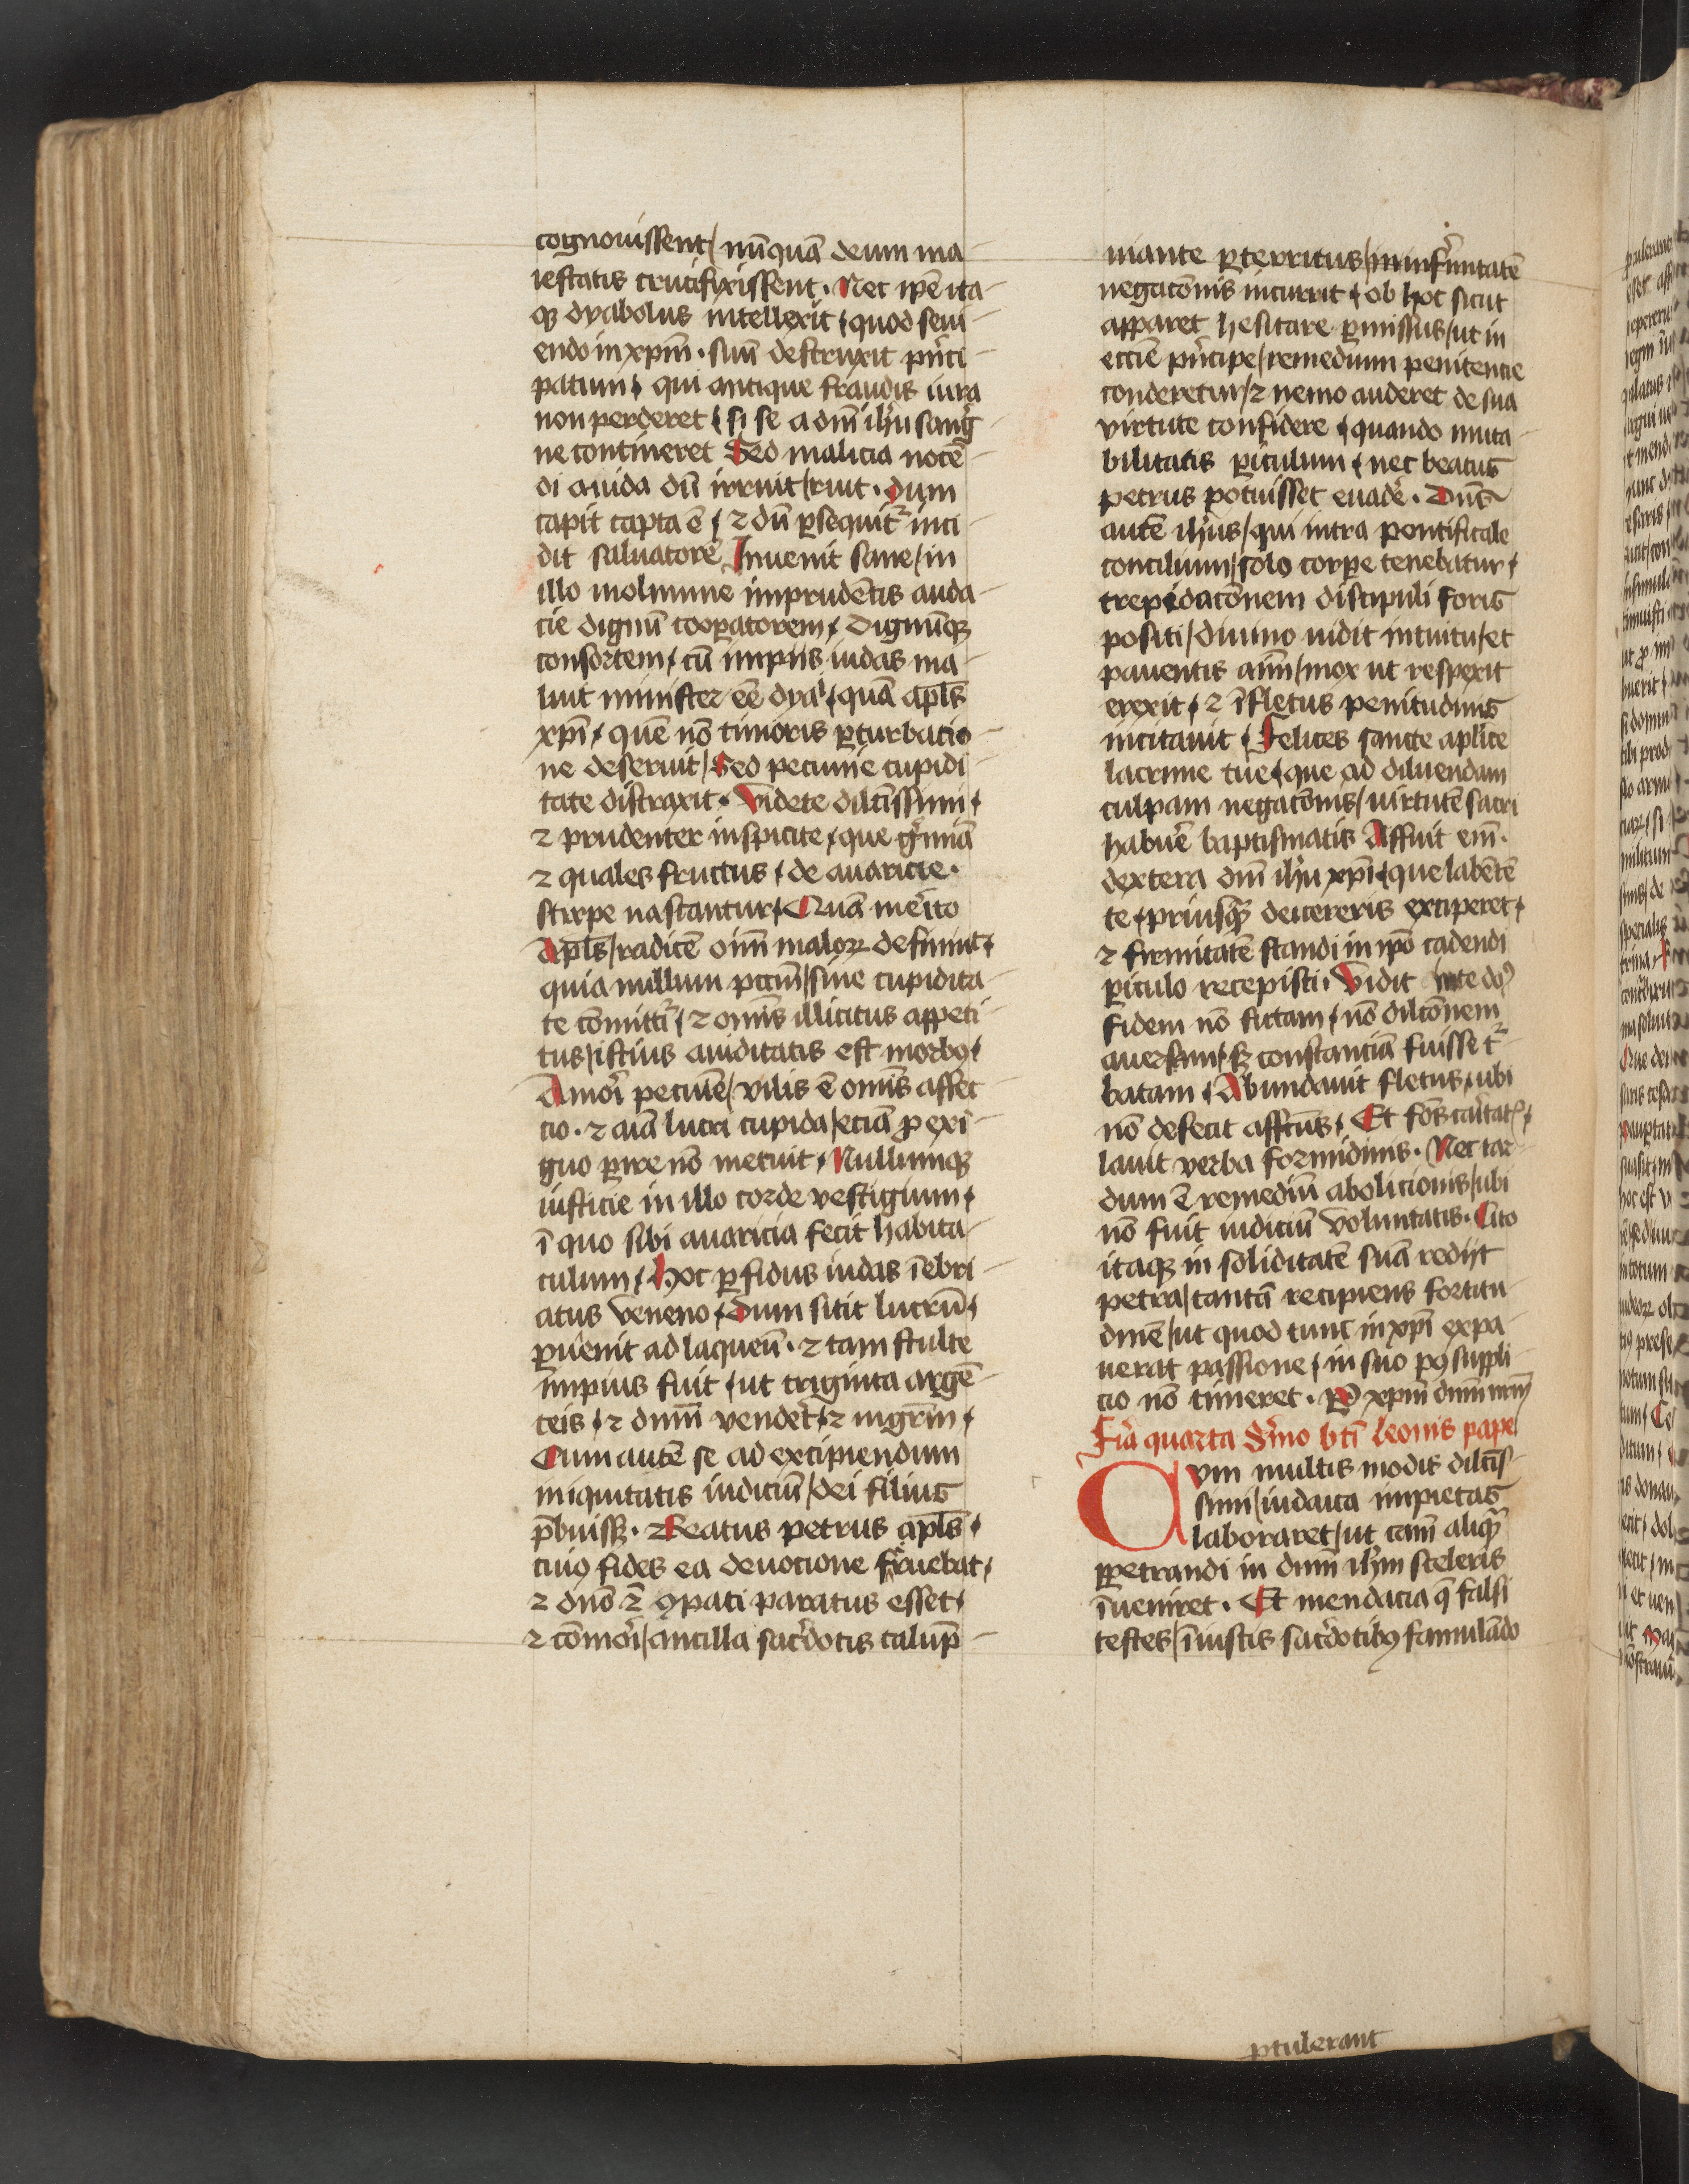 cognouissent/ nūquā deum ma-
iestatis crucifixissent. Nec ip̄e ita-
qꝫ dyabolus intellexit/ quod seui-
endo in xp̄m. suū destruxit prīci-
patum/ qui antique fraudis iura
non perderet/ si se a dn̄i ih̄u sang
ne contineret Sed malicia nocē-
di auida dū irruit/ ruit. dum
capit capta ē/ ⁊ dū ꝑsequit᷑ inci-
dit saluatorē Inuenit sane/ in
illo molimine imprudētis auda-
cie dignū cooꝑatorem/ Dignūqꝫ
consortem/ cū impiis iudas ma-
luit minister ēe dyal̄/ quā apl̄s
xp̄i/ quē nō timoris ꝑturbacio-
ne deseruit/ Sed pecunie cupidi-
tate distraxit. Videte dilc̄issimi/
⁊ prudenter inspicite/ que gīmīa
⁊ quales fructus/ de auaricie.
stirpe nascantur/ Quā merito
Apl̄s/ radicē oīm maloꝝ definiuit/
quia nullum pccm̄/ sine cupidita-
te cōmittit᷑/ ⁊ omīs illicitus appeti-
tus/ istius auiditatis est morbꝰ/
Amori pecunie/ vilis ē omīs affec-
cio. ⁊ aīa lucri cupida/ eciā ꝓ exi-
guo ꝑire nō metuit/ Nullumqꝫ
iusticie in illo corde vestigium/
ī quo sibi auaricia fecit habita-
culum/ Hoc ꝑfidus iudas īebri-
atus veneno/ Dum sitit lucrū/
ꝑuenit ad laqueū. ⁊ tam stulte
impius fuit/ ut triginta argē-
teis/ ⁊ dn̄m venderet/ ⁊ mgrm̄/
Cum autē se ad excipiendum
iniquitatis iudiciū/ dei filius
p̄buissꝫ. Beatus petrus apl̄s/
cuiꝰ fides ea deuocione feruebat/
⁊ dn̄o ⁊ ꝯpati paratus esset/
⁊ cōmori/ ancilla sac̄dotis calūp-
niante ꝑterritus/ in infirmitatē
negacōnis incurrit/ ob hoc sicut
apparet hesitare ꝑmissus/ ut in
eccīe prīcipe/ remedium penitencie
conderetur/ ⁊ nemo auderet de sua
virtute confidere/ quando muta-
bilitatis ꝑiculum/ nec beatus
petrus potuisset euadē. Dn̄s
autē ih̄us/ qui intra pontificale
concilium/ solo corꝑe tenebatur/
trepidacōnem discipuli foris
positi/ diuino uidit intuitu/ et
pauentis aīm/ mox ut respexit
erexit/ ⁊ ī fletus penitudinis
incitauit/ Felices sancte apl̄ice
lacrime tue/ que ad diluendam
culpam negacōnis/ uirtutē sacri
habuē baptismatis Affuit eīm.
dextera dn̄i ih̄u xp̄i/ que labētē
te/ priusqꝫ deicereris exciperet/
⁊ firmitatē standi in ip̄o cadendi
ꝑiculo recepisti. Vidit in te dn̄s
fidem nō fictam/ nō dilcōnem
auersam/ sꝫ constanciā fuisse t᷑-
batam/ Abundauit fletus/ ubi
nō defecit affectus/ Et fōs caritatꝭ/
lauit verba formidinis. Nec tar-
dum ē remediū abolicionis/ ubi
nō fuit iudiciū voluntatis. Cito
itaqꝫ in soliditatē suā rediit
petra/ tantā recipiens fortitu-
dinē/ ut quod tunc in xp̄i expa-
uerat passione/ in suo pꝰ suppli-
cio nō timeret. ꝑ xp̄m dn̄m nr̄m
Fīa quarta Sermo bt̄i Leonis pape
Cvm multis modis dilc̄is-
simi/ iudaica impietas
laboraret/ ut cām aliqꝫ
ꝑpetrandi in dn̄m ih̄m sceleris
īueniret. Et mendacia q̄ falsi
testes/ īiustis sac̄dotibꝰ famulādo
ptulerant